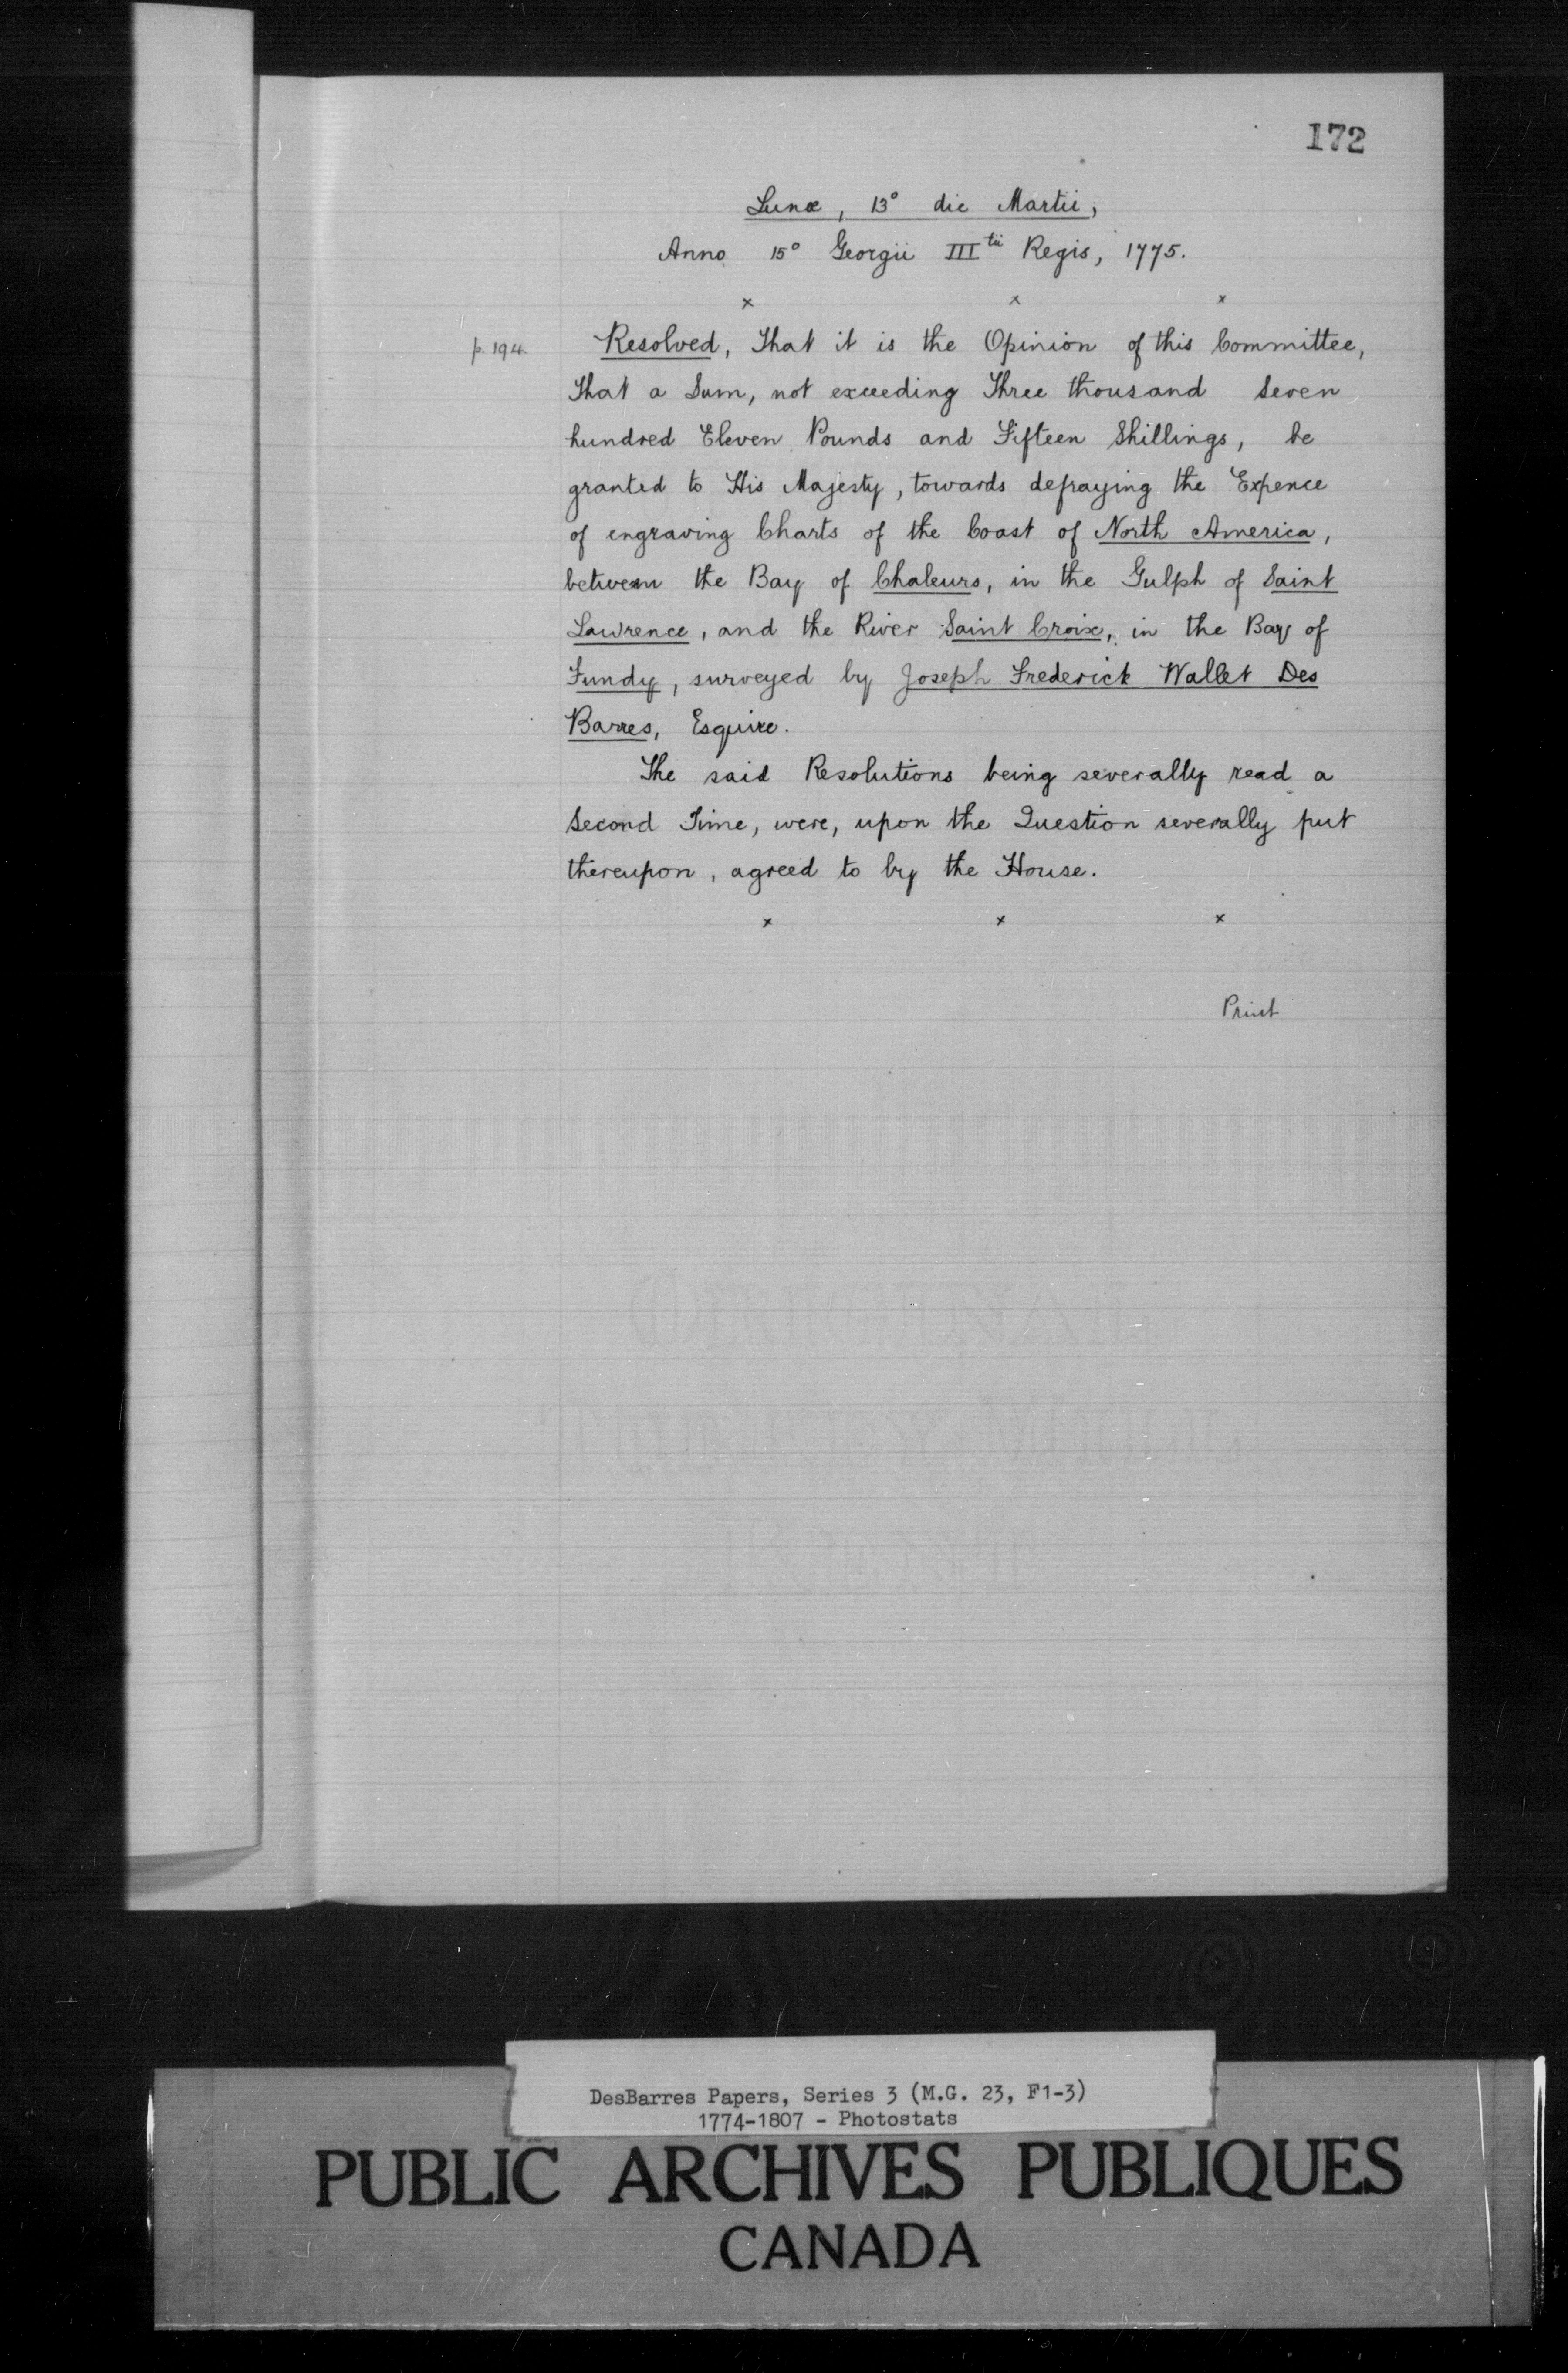 172
Lunæ, 13° die Martii,
Anno 15° Georgii IIItii Regis, 1775.
x x x
p. 194.
Resolved, That it is the Opinion of this Committee,
That a Sum, not exceeding Three thousand Seven
hundred Eleven Pounds and Fifteen Shillings, be
granted to His Majesty, towards defraying the Expence
of engraving Charts of the Coast of North America,
between the Bay of Chaleurs, in the Gulph of Saint
Lawrence, and the River Saint Croix, in the Bay of
Fundy, surveyed by Joseph Frederick Wallet Des
Barres, Esquire.
The said Resolutions being severally read a
Second Time, were, upon the Question severally put
thereupon, agreed to by the House.
x x x
Print
DesBarres Papers, Series 3 (M.G. 23, F1-3)
1774-1807 - Photostats
PUBLIC ARCHIVES PUBLIQUES
CANADA